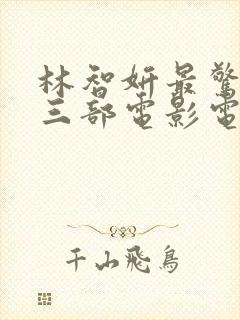 林智妍最驚
三部電影電
千山飛鳥